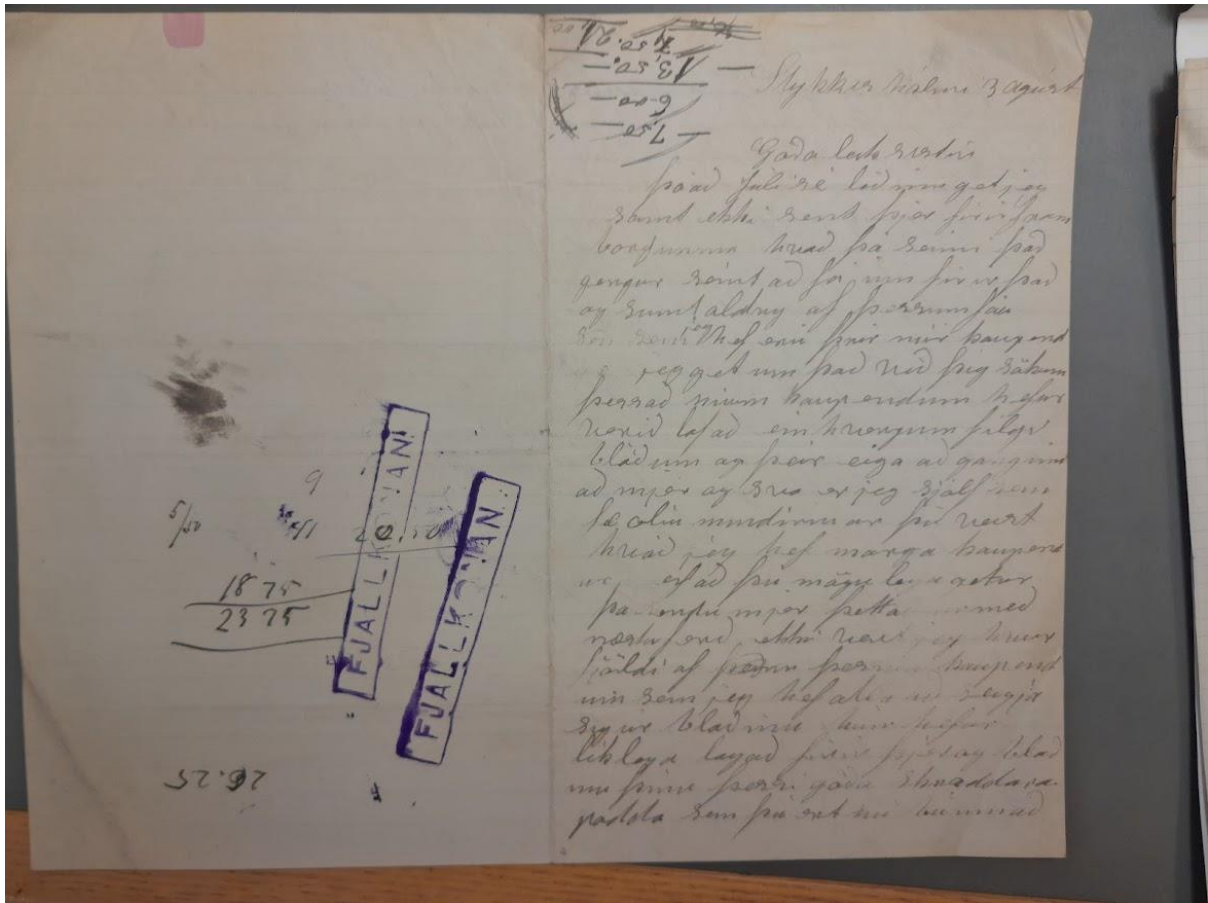 9
5/50
18 75
23 75
FJALLKONAN
FJALLKONAN
26.25
21.00
7,50.
13,50.—
6.00 —
7,50 —
Stykkishólmi 3 ágúst
Góða leksystir
þó að júlí sé liðinn get jeg
samt ekki sent þjer firir fram
borgunina hvað þá heinn það
gengur seint að fá inn firir það
og sumt aldrey af þessum
sem jeg hef eru þrír nír kaupend
jeg get um það við þig sökum
þessað níum kaupendum hefur
verið lofað einhverjum filgi
blöðum og þeir eiga að gang inn
að mjer og svo er jeg sjálf
mindirnar þú veist
hvað jeg hef marga kaupend
ur, ef að þú mögulega getur
þá sendu mjer þetta með
næstu ferð, ekki veit jeg hvur
fjöldi af þeðum þessum kaupend
um sem jeg hef ætla að segja
sig ur blaðinu hefur
liklega lagað firir þjer og blað
inu þinu þessi góða skraddara
padda sem þú ert nú búinn að